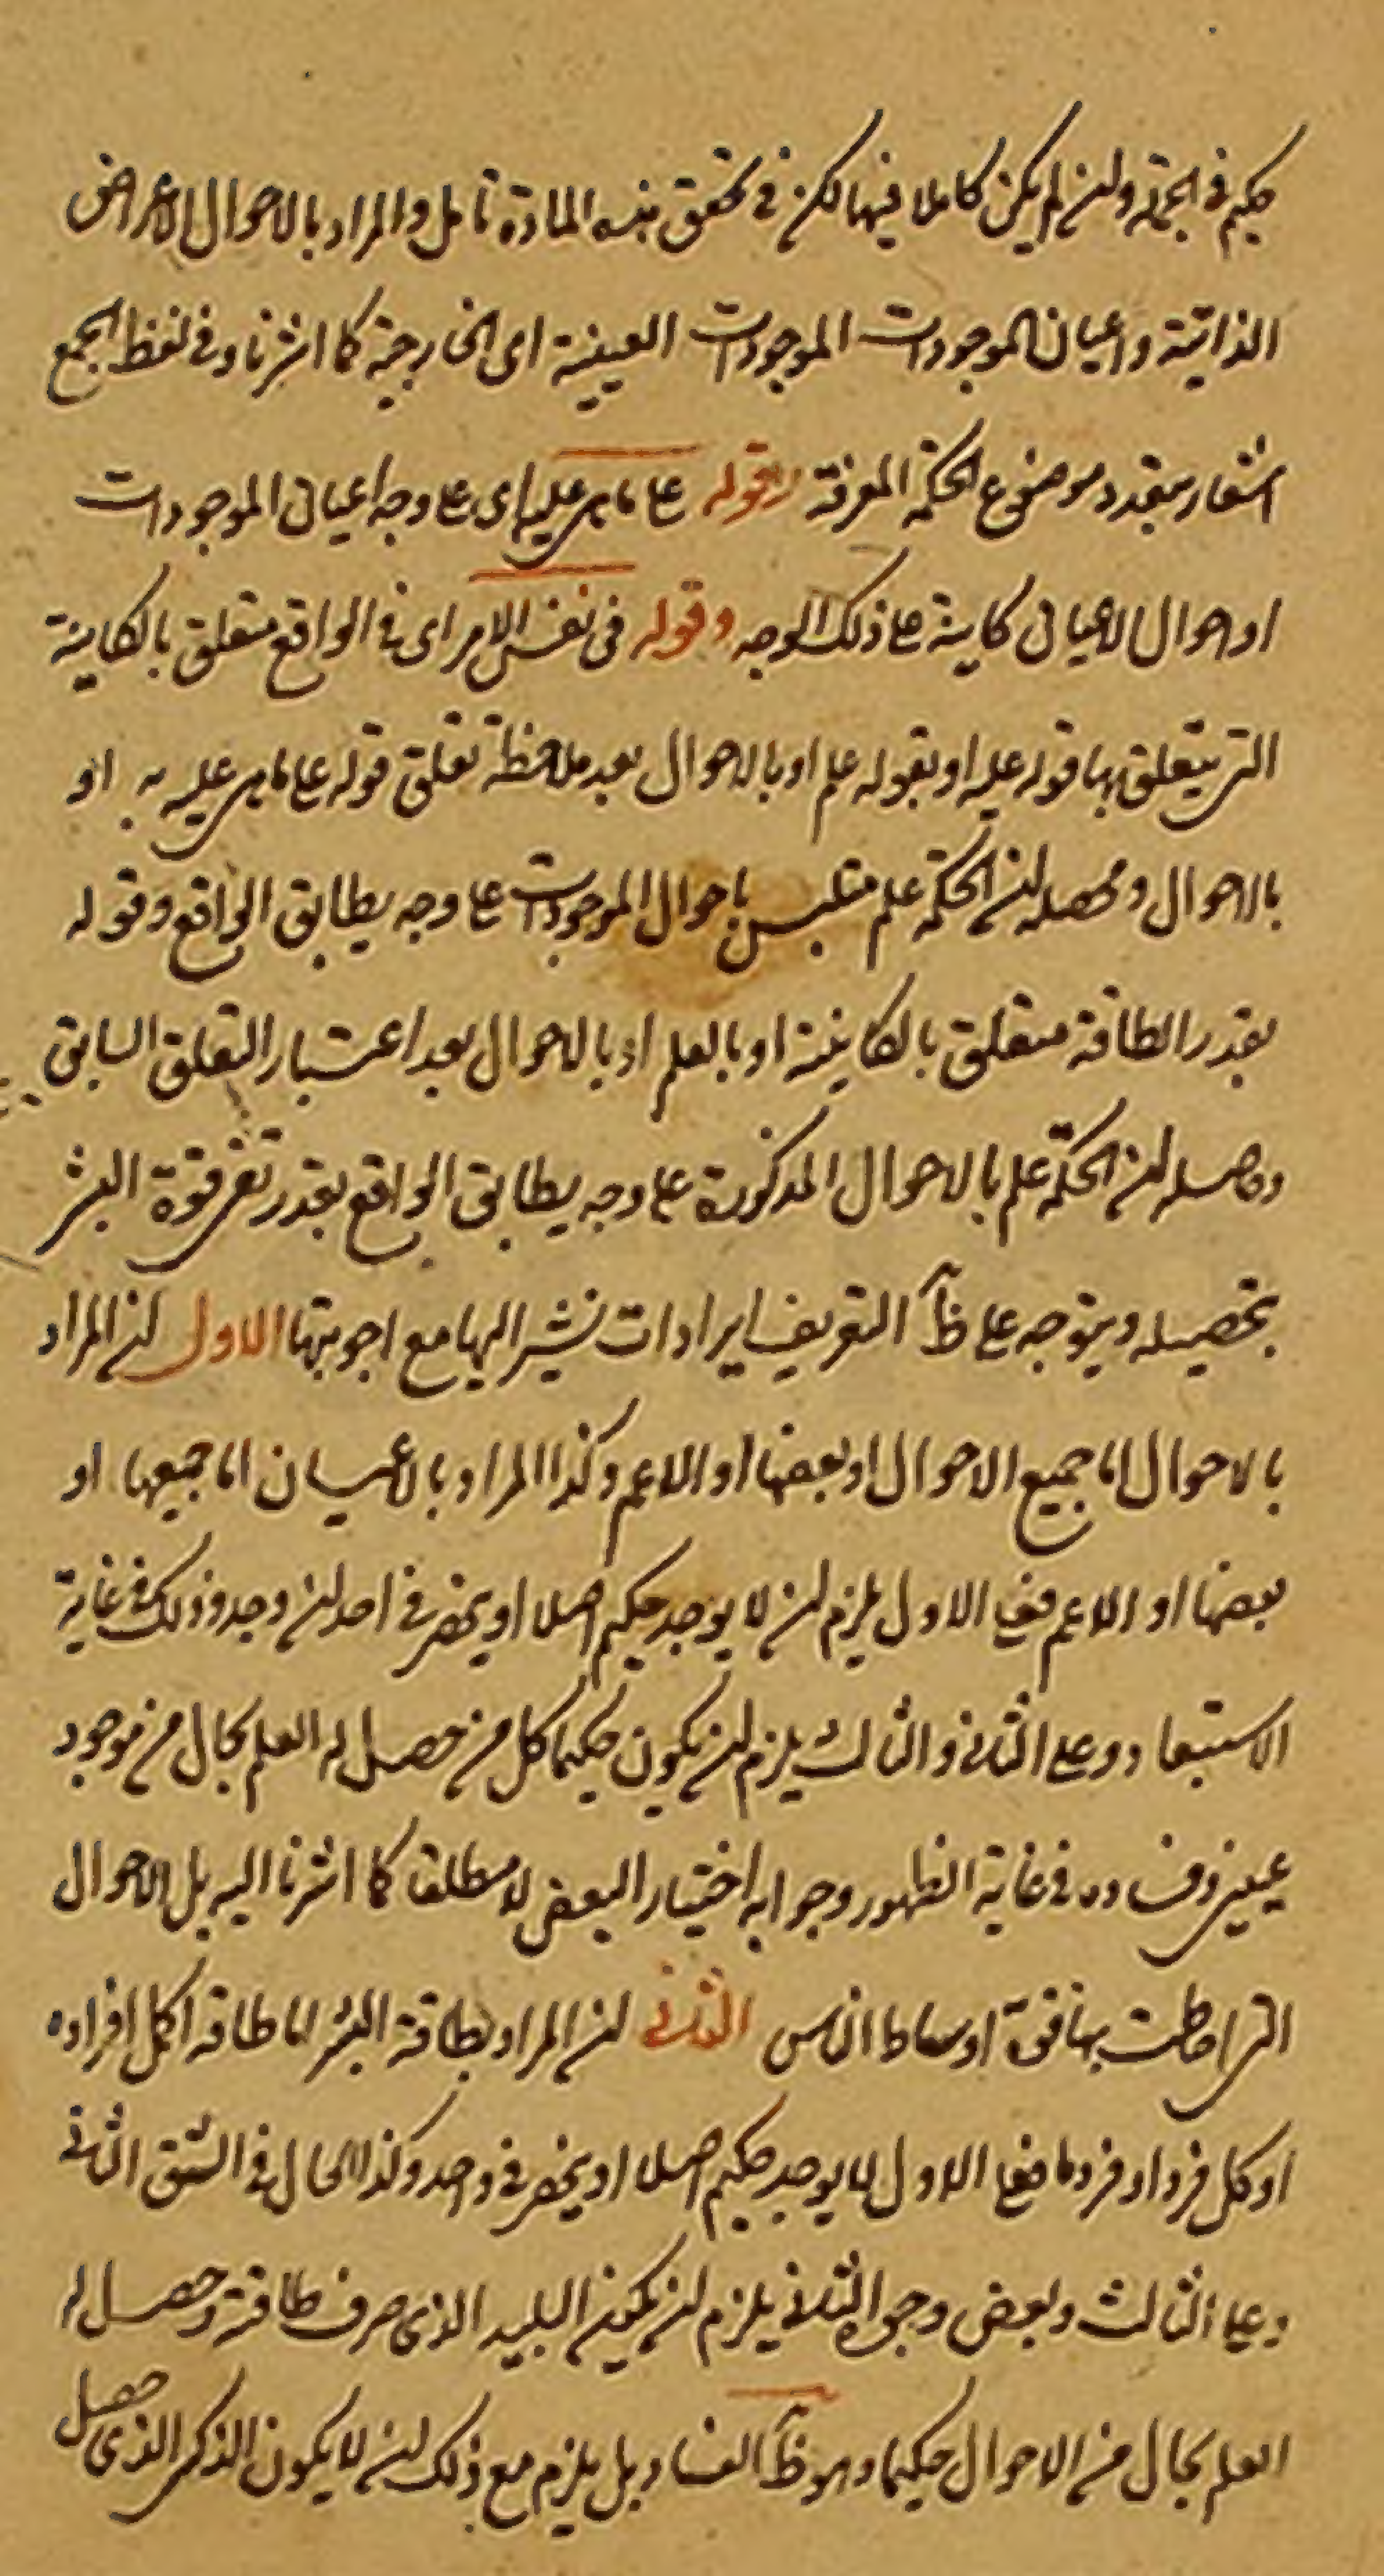 حكيم فى الجملة وان لم يكن كاملا فيها لكن فى تحقق هذه المادة تأمل والمراد بالاحوال الاعراض
الذاتية واعيان الموجودات الموجودات العينية اى الخارجية كما اشرنا وفى لفظ الجمع
اشعار بتعدد موضوع الحكمة المعرفة وقوله على ما هى عليه اى على وجه اعيان الموجودات
او احوال الاعيان كاينة على ذلك الوجه وقوله فى نفس الامر اى فى الواقع متعلق بالكاينة
التى يتعلق بها قوله عليه او بقوله علم او بالاحوال بعد ملاحظة تعلق قوله على ما هى عليه به او
بالاحوال ومحصله ان الحكمة علم متلبس باحوال الموجودات على وجه يطابق الواقع وقوله
بقدر الطاقة متعلق بالكاينة او بالعلم او بالاحوال بعد اعتبار التعلق السابق
وحاصله ان الحكمة علم بالاحوال المذكورة على وجه يطابق الواقع بقدر تفى قوة البشر
بتحصيله ويتوجه على ظآ التعريف ايرادات نشير اليها مع اجوبتها الاول ان المراد
بالاحوال اما جميع الاحوال او بعضها او الاعم وكذا المراد بالاعيان اما جميعها او
بعضها او الاعم فعلى الاول يلزم ان لا يوجد حكيم اصلا او ينحصر فى احد ان وجد وذلك فى غاية
الاستبعاد وعلى الثانى والثالث يلزم ان يكون حكيما كل من حصل له العلم بحال من موجود
عينى وفساده فى غاية الظهور وجوابه اختيار البعض لا مطلقا كما اشرنا اليه بل الاحوال
التى احاطت بها قوة اوساط الناس الثانى ان المراد بطاقة البشر اما طاقة اكمل افراده
او كل فرد او فرد ما فعلى الاول لا يوجد حكيم اصلا او ينحصر فى واحد وكذا الحال فى الشق الثانى
وعلى الثالث وبعض وجوه الثانى يلزم ان يكون البليد الذى صرف طاقته وحصل له
العلم بحال من الاحوال حكيما وهو ظآ الفساد بل يلزم مع ذلك ان لا يكون الذكى الذى حصل